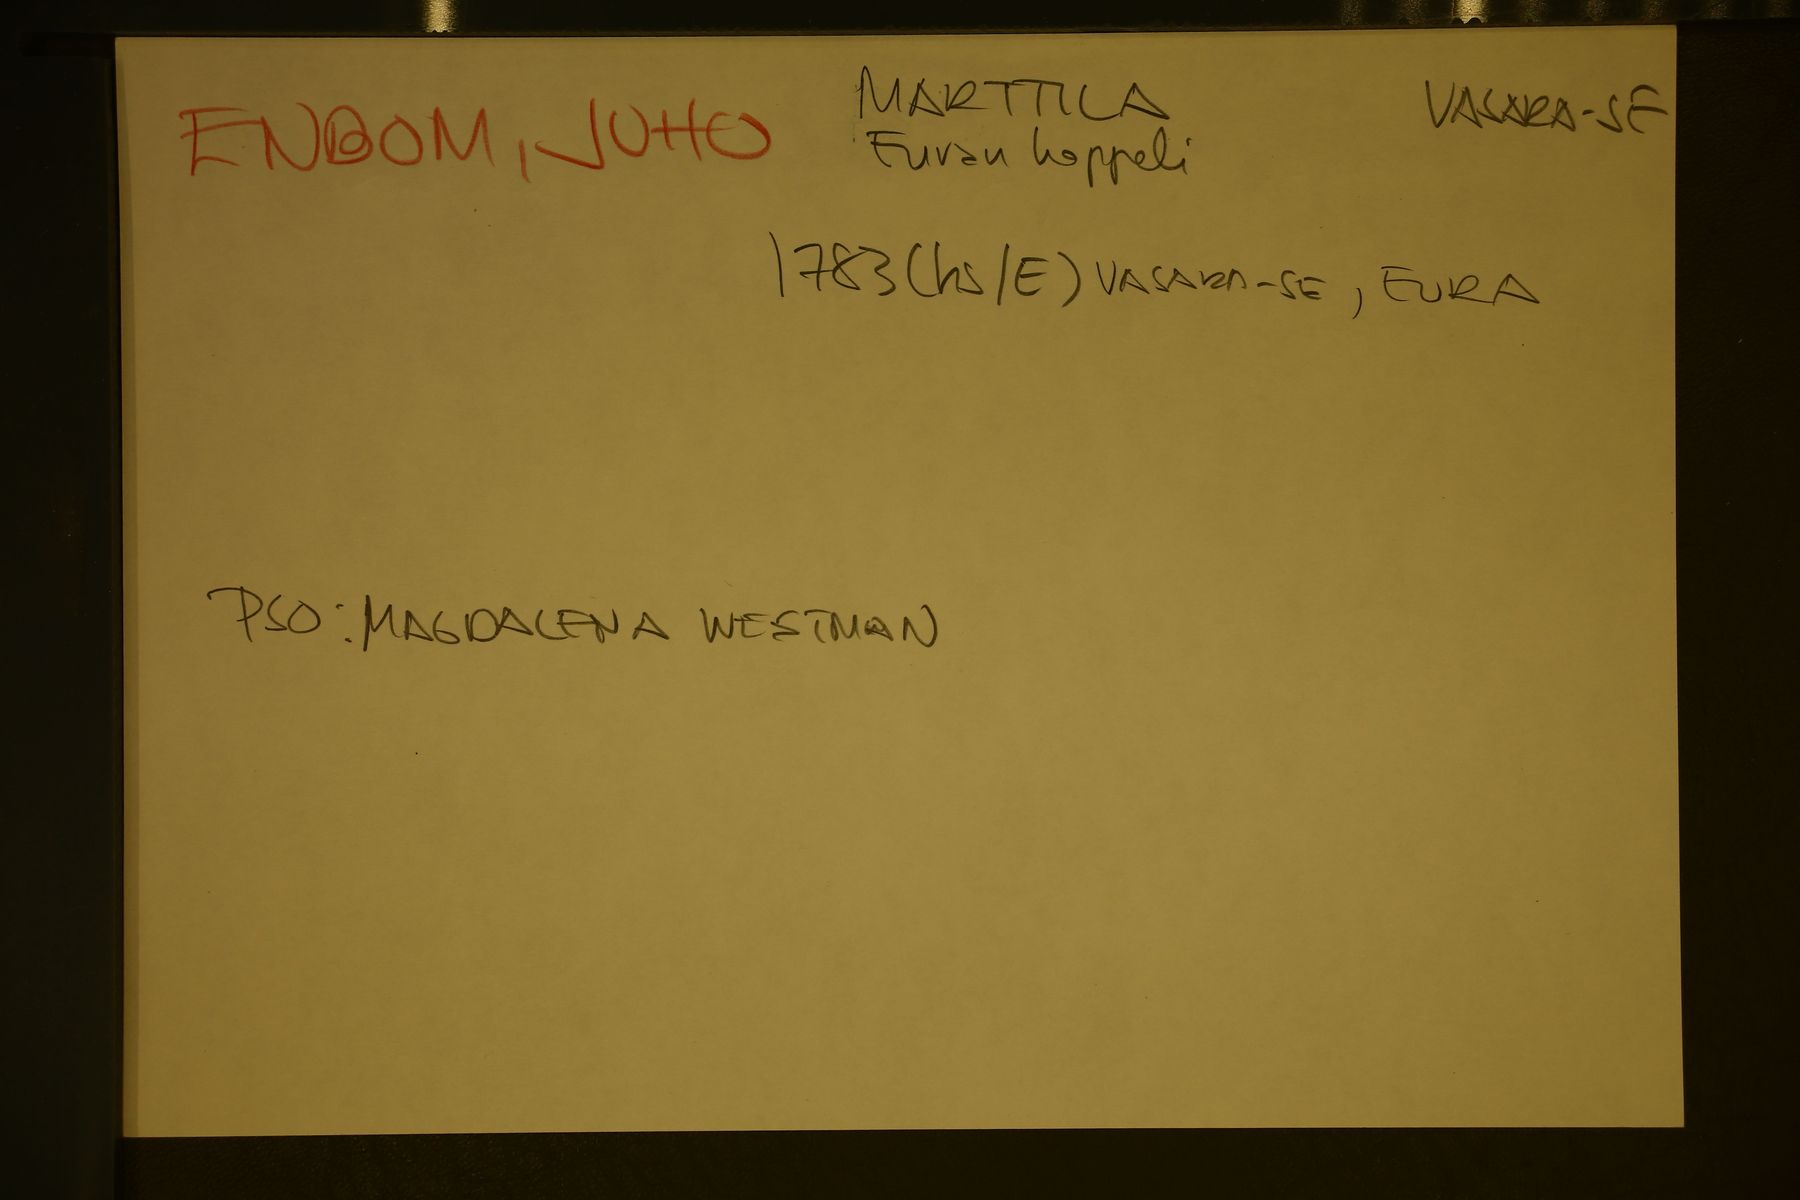 ENBOM, JUHO
MARTTILA
VASARA-SE
Euran kappeli
1783 (hs/E) VASARA-SE, EURA
PSO: MAGDALENA WESTMAN